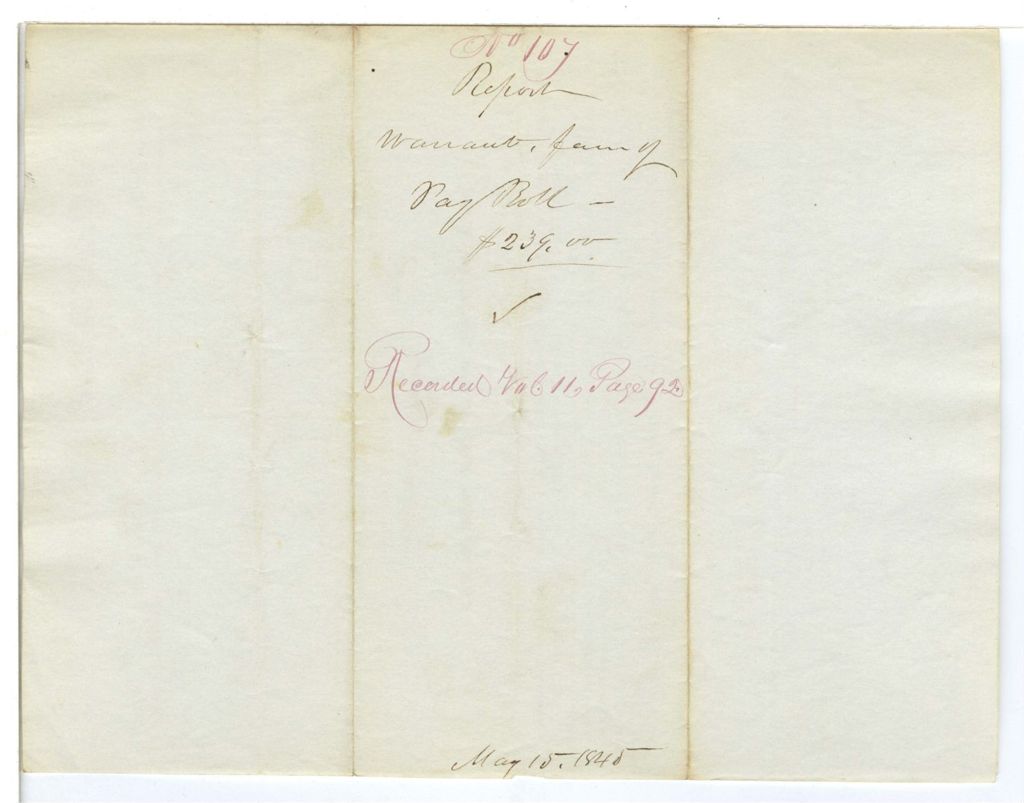 No 107
Report
Warrant, favor of
Pay Roll –
$239.00
✓
Recorded Vol. 11, Page 92
May 15. 1845